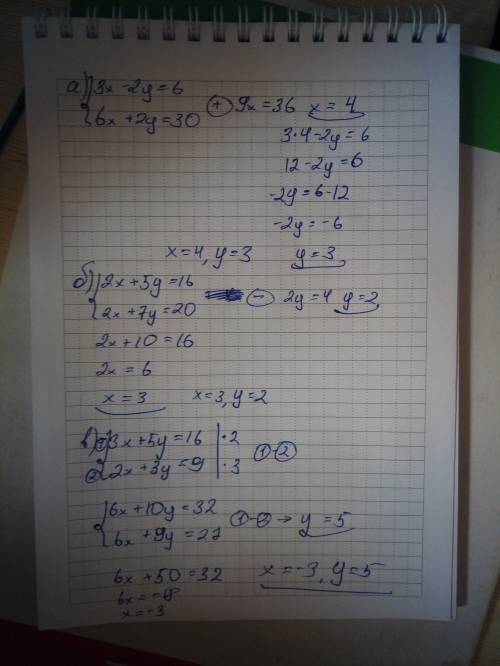 а) { 3x - 2y = 6
6x + 2y = 30 ⊕ 9x = 36 x = 4
3·4 - 2y = 6
12 - 2y = 6
-2y = 6 - 12
-2y = -6
x = 4, y = 3 y = 3
б) { 2x + 5y = 16
2x + 7y = 20 ⊖ 2y = 4 y = 2
2x + 10 = 16
2x = 6
x = 3 x = 3, y = 2
в) { ① 3x + 5y = 16 | ·2
② 2x + 3y = 9 | ·3 ①-②
{ 6x + 10y = 32
6x + 9y = 27 ①-② → y = 5
6x + 50 = 32 x = -3, y = 5
6x = -18
x = -3